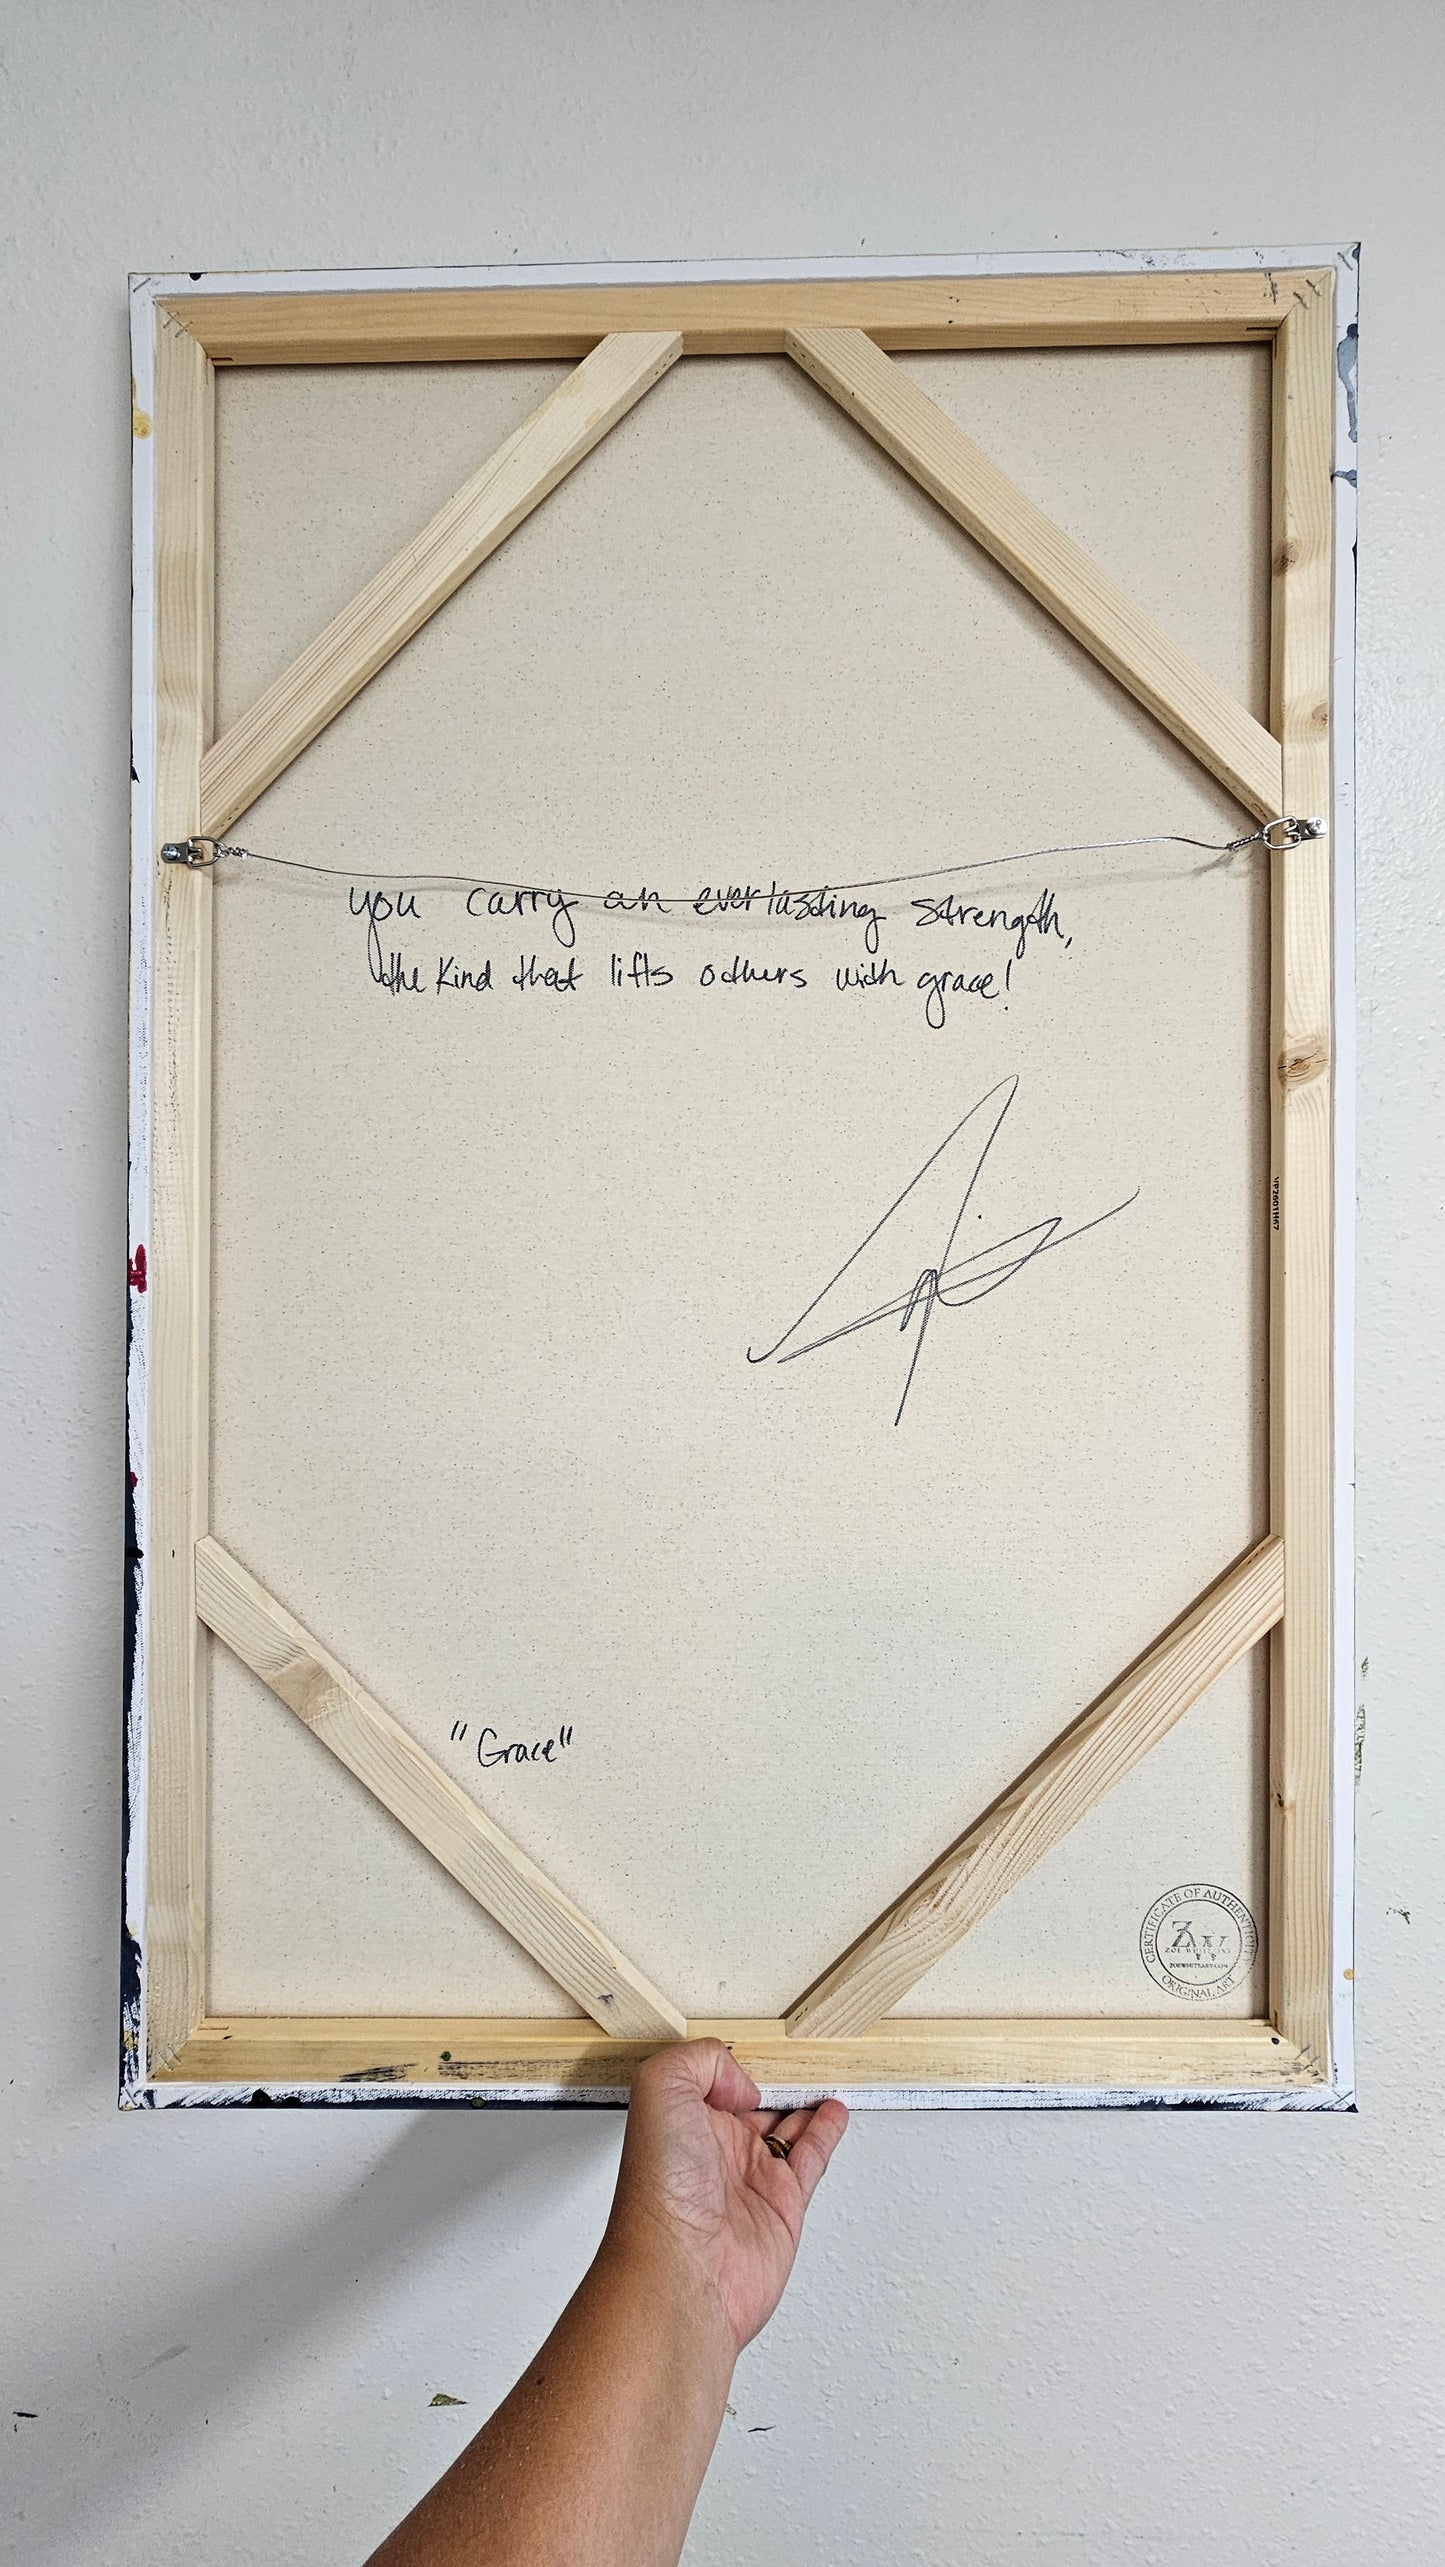 you carry an everlasting strength,
the kind that lifts others with grace!
VP2601H67
"Grace"
CERTIFICATE OF AUTHENTICITY
ZW
ZOE WHITE ART
ZOEWHITEART.COM
ORIGINAL ART